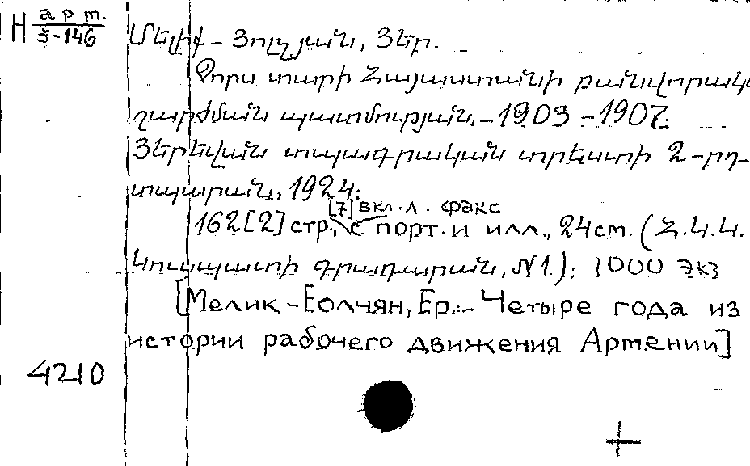 Н арт.
5-146
Մելիք - Յոլչյան, Յեր.
Չորս տարի Հայաստանի բանվորակ
շարժման պատմության. - 1903 - 1907.
Յերեվան տպագրական տրեստի 2-րդ
տպարան, 1924:
[7] вкл. л. факс
162 [2] стр., с порт. и илл., 24 см. (Հ.Կ.Կ.
Կուսպատի գրադարան, №1.): 1000 экз
[Мелик-Еолчян, Ер. - Четыре года из
истории рабочего движения Армении]
4210